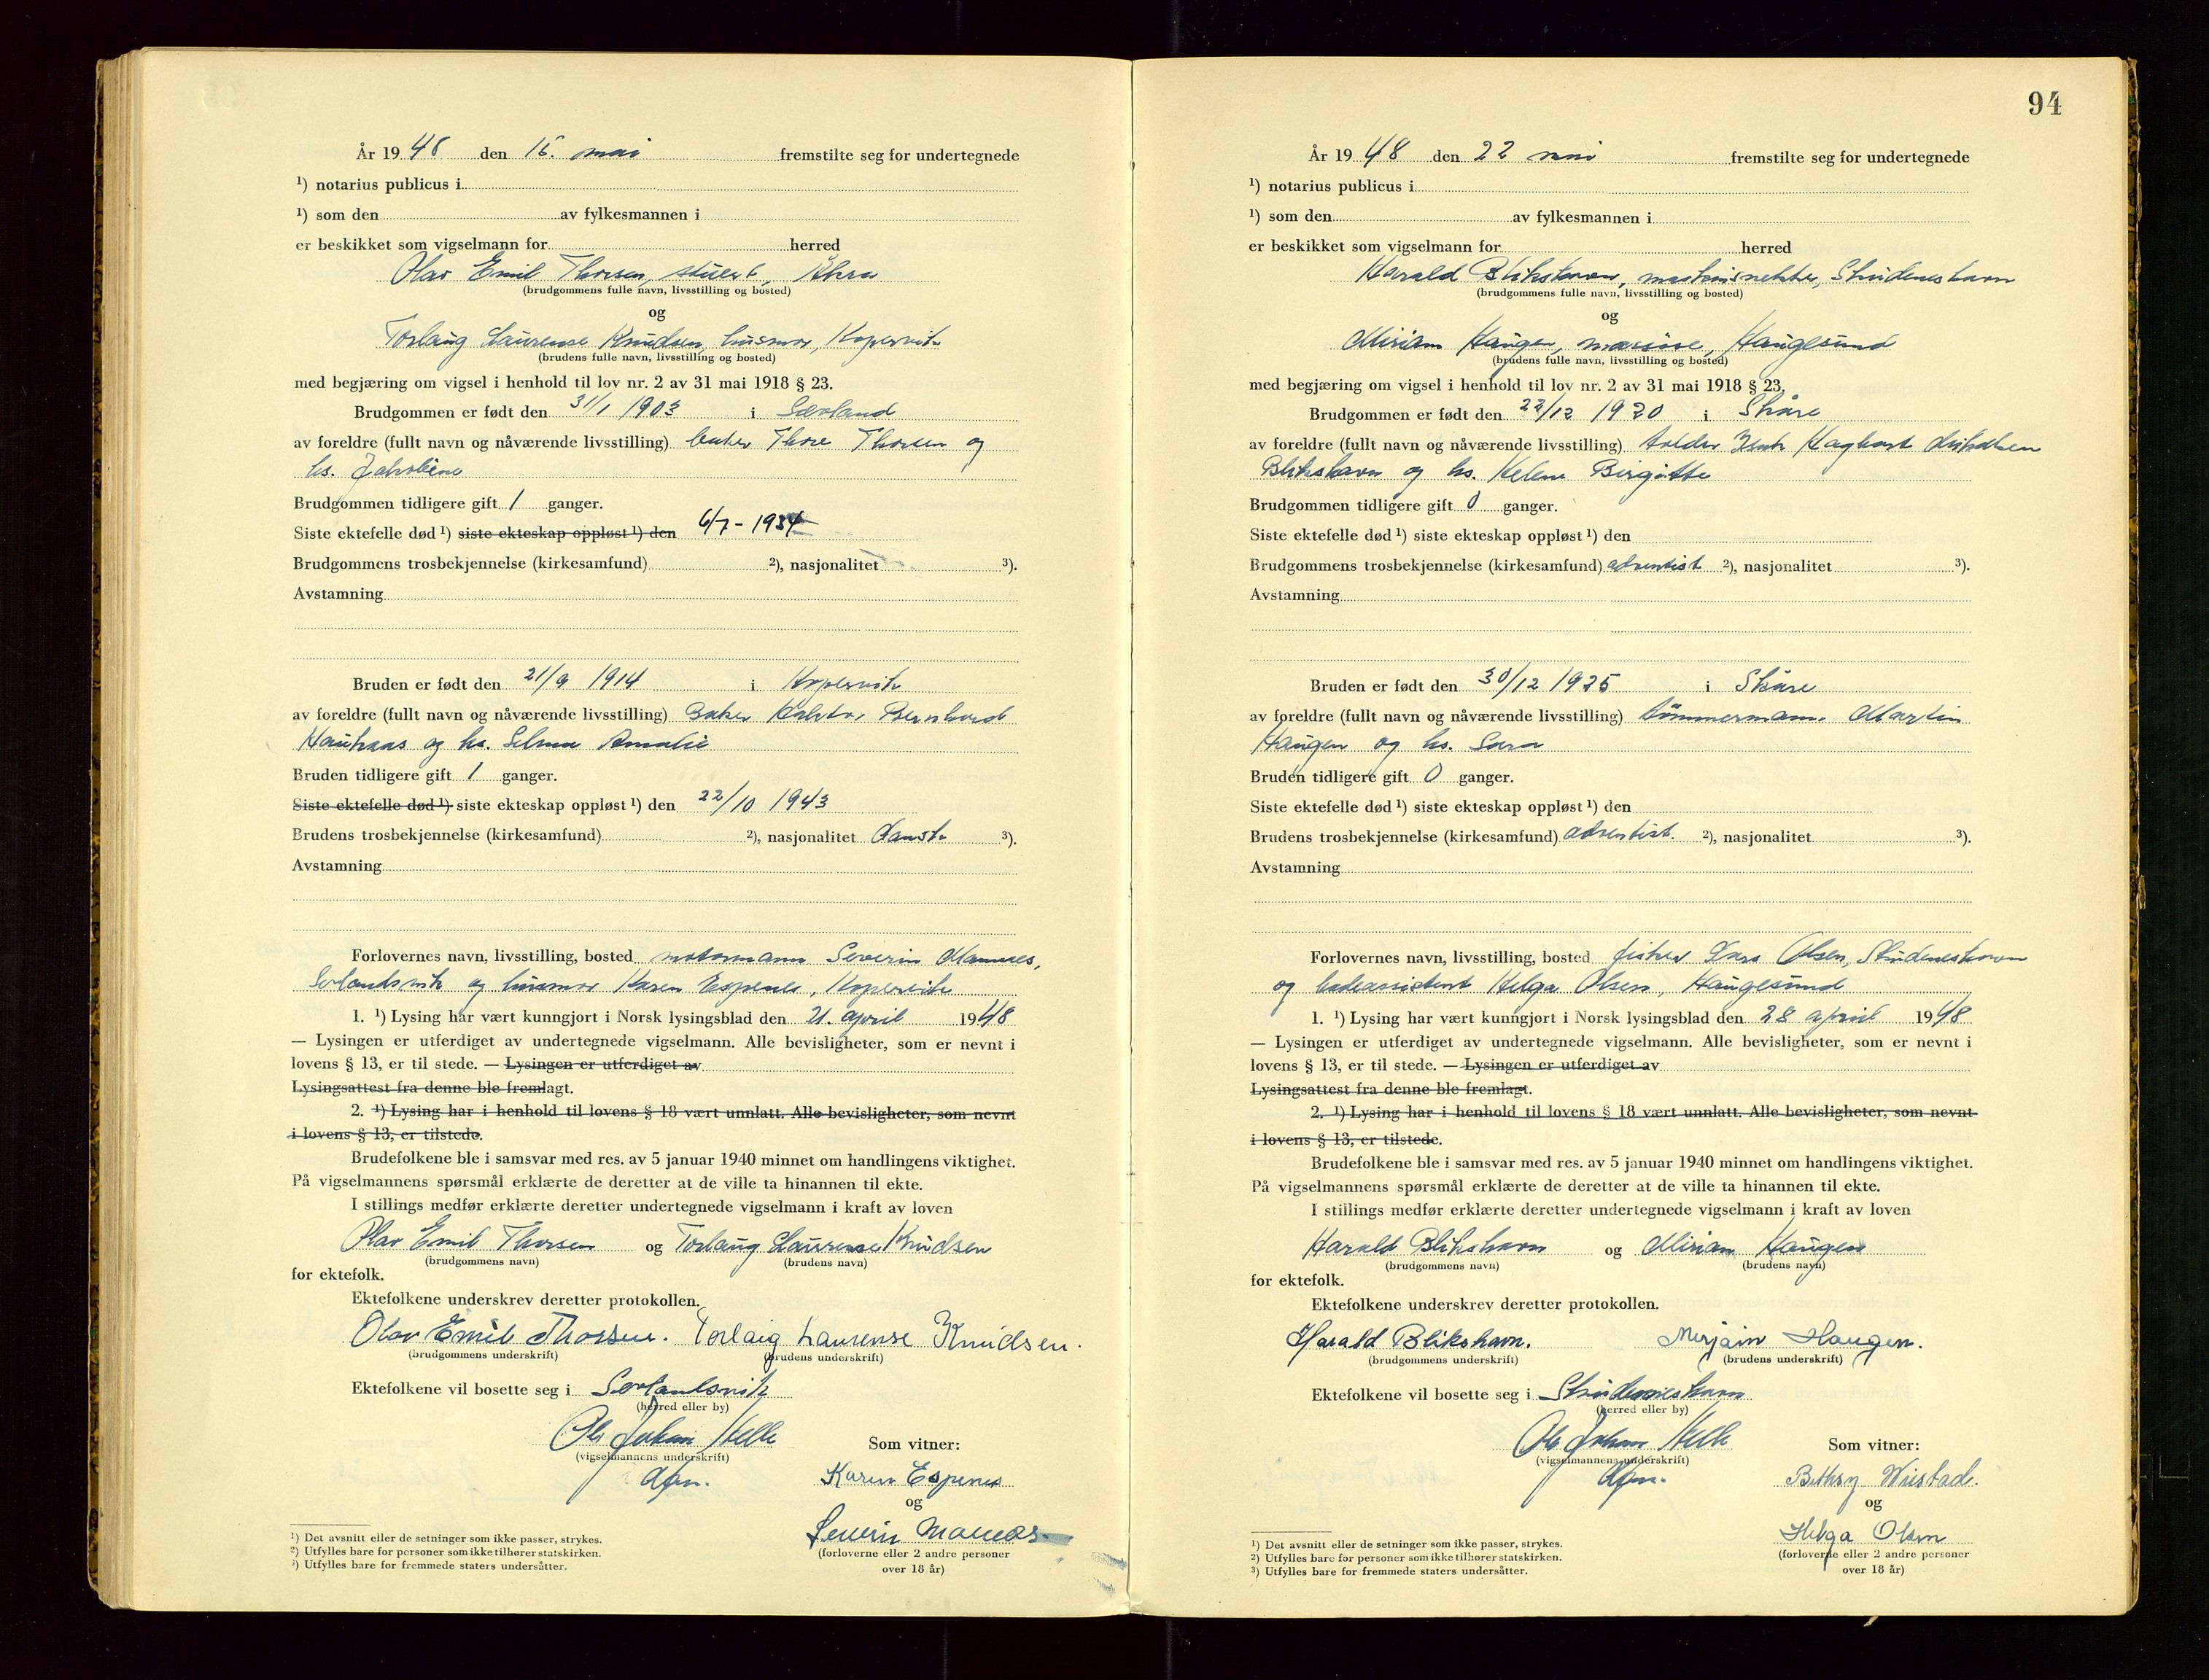 År 19 48 den 15. mai fremstilte seg for undertegnede
¹) notarius publicus i
¹) som den av fylkesmannen i
er beskikket som vigselmann for herred
Olav Emil Thorsen, stuert, Åkra
(brudgommens fulle navn, livsstilling og bosted)
og
Torlaug Laurense Knudsen, husmor, Kopervik
(brudens fulle navn, livsstilling og bosted)
med begjæring om vigsel i henhold til lov nr. 2 av 31 mai 1918 § 23.
Brudgommen er født den 31/1 1903 i Sævland
av foreldre (fullt navn og nåværende livsstilling) Thore Thorsen og
hs. Jakobine
Brudgommen tidligere gift 1 ganger.
Siste ektefelle død ¹) siste ekteskap oppløst ¹) den 6/7 - 1934
Brudgommens trosbekjennelse (kirkesamfund) ²), nasjonalitet ³).
Avstamning
Bruden er født den 21/9 1914 i Kopervik
av foreldre (fullt navn og nåværende livsstilling) Baker Bernhard
og hs. Selma Amalie
Bruden tidligere gift 1 ganger.
Siste ektefelle død ¹) siste ekteskap oppløst ¹) den 22/10 1943
Brudens trosbekjennelse (kirkesamfund) ²), nasjonalitet dansk ³).
Avstamning
Forlovernes navn, livsstilling, bosted motormann Severin Mannes,
Sevlandsvik og husmor Karen Espenes, Kopervik
1. ¹) Lysing har vært kunngjort i Norsk lysingsblad den 21. april 1948
— Lysingen er utferdiget av undertegnede vigselmann. Alle bevisligheter, som er nevnt i
lovens § 13, er til stede. — Lysingen er utferdiget av
Lysingsattest fra denne ble fremlagt.
2. ¹) Lysing har i henhold til lovens § 18 vært unnlatt. Alle bevisligheter, som nevnt
i lovens § 13, er tilstede.
Brudefolkene ble i samsvar med res. av 5 januar 1940 minnet om handlingens viktighet.
På vigselmannens spørsmål erklærte de deretter at de ville ta hinannen til ekte.
I stillings medfør erklærte deretter undertegnede vigselmann i kraft av loven
Olav Emil Thorsen og Torlaug Laurense Knudsen
(brudgommens navn) (brudens navn)
for ektefolk.
Ektefolkene underskrev deretter protokollen.
Olav Emil Thorsen. Torlaug Laurense Knudsen.
(brudgommens underskrift) (brudens underskrift)
Ektefolkene vil bosette seg i Sevlandsvik
(herred eller by)
Johan Helle
(vigselmannens underskrift)
Som vitner:
Karen Espenes
og
Severin Mannes.
(forloverne eller 2 andre personer
over 18 år)
¹) Det avsnitt eller de setninger som ikke passer, strykes.
²) Utfylles bare for personer som ikke tilhører statskirken.
³) Utfylles bare for fremmede staters undersåtter.
94
År 19 48 den 22 mai fremstilte seg for undertegnede
¹) notarius publicus i
¹) som den av fylkesmannen i
er beskikket som vigselmann for herred
Harald Blikshavn, Skudeneshavn
(brudgommens fulle navn, livsstilling og bosted)
og
Miriam Haugen, massøse, Haugesund
(brudens fulle navn, livsstilling og bosted)
med begjæring om vigsel i henhold til lov nr. 2 av 31 mai 1918 § 23,
Brudgommen er født den 22/12 1920 i Skåre
av foreldre (fullt navn og nåværende livsstilling) Hagbart
Blikshavn og hs. Helene Birgitte
Brudgommen tidligere gift 0 ganger.
Siste ektefelle død ¹) siste ekteskap oppløst ¹) den
Brudgommens trosbekjennelse (kirkesamfund) adventist ²), nasjonalitet ³).
Avstamning
Bruden er født den 30/12 1925 i Skåre
av foreldre (fullt navn og nåværende livsstilling) tømmermann Martin
Haugen og hs. Sara
Bruden tidligere gift 0 ganger.
Siste ektefelle død ¹) siste ekteskap oppløst ¹) den
Brudens trosbekjennelse (kirkesamfund) adventist. ²), nasjonalitet ³).
Avstamning
Forlovernes navn, livsstilling, bosted fisker Lars Olsen, Skudeneshavn
og badeassistent Helga Olsen, Haugesund
1. ¹) Lysing har vært kunngjort i Norsk lysingsblad den 28 april 1948
— Lysingen er utferdiget av undertegnede vigselmann. Alle bevisligheter, som er nevnt i
lovens § 13, er til stede. — Lysingen er utferdiget av
Lysingsattest fra denne ble fremlagt.
2. ¹) Lysing har i henhold til lovens § 18 vært unnlatt. Alle bevisligheter, som nevnt
i lovens § 13, er tilstede.
Brudefolkene ble i samsvar med res. av 5 januar 1940 minnet om handlingens viktighet.
På vigselmannens spørsmål erklærte de deretter at de ville ta hinannen til ekte.
I stillings medfør erklærte deretter undertegnede vigselmann i kraft av loven
Harald Blikshavn og Miriam Haugen
(brudgommens navn) (brudens navn)
for ektefolk.
Ektefolkene underskrev deretter protokollen.
Harald Blikshavn. Mirjam Haugen.
(brudgommens underskrift) (brudens underskrift)
Ektefolkene vil bosette seg i Skudeneshavn
(herred eller by)
Johan Helle
(vigselmannens underskrift)
Som vitner:
Betsy
og
Helga Olsen
(forloverne eller 2 andre personer
over 18 år)
¹) Det avsnitt eller de setninger som ikke passer, strykes.
²) Utfylles bare for personer som ikke tilhører statskirken.
³) Utfylles bare for fremmede staters undersåtter.